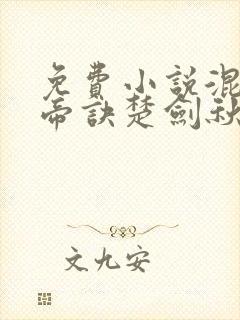 免費小說混
帝訣楚劍秋
文九安